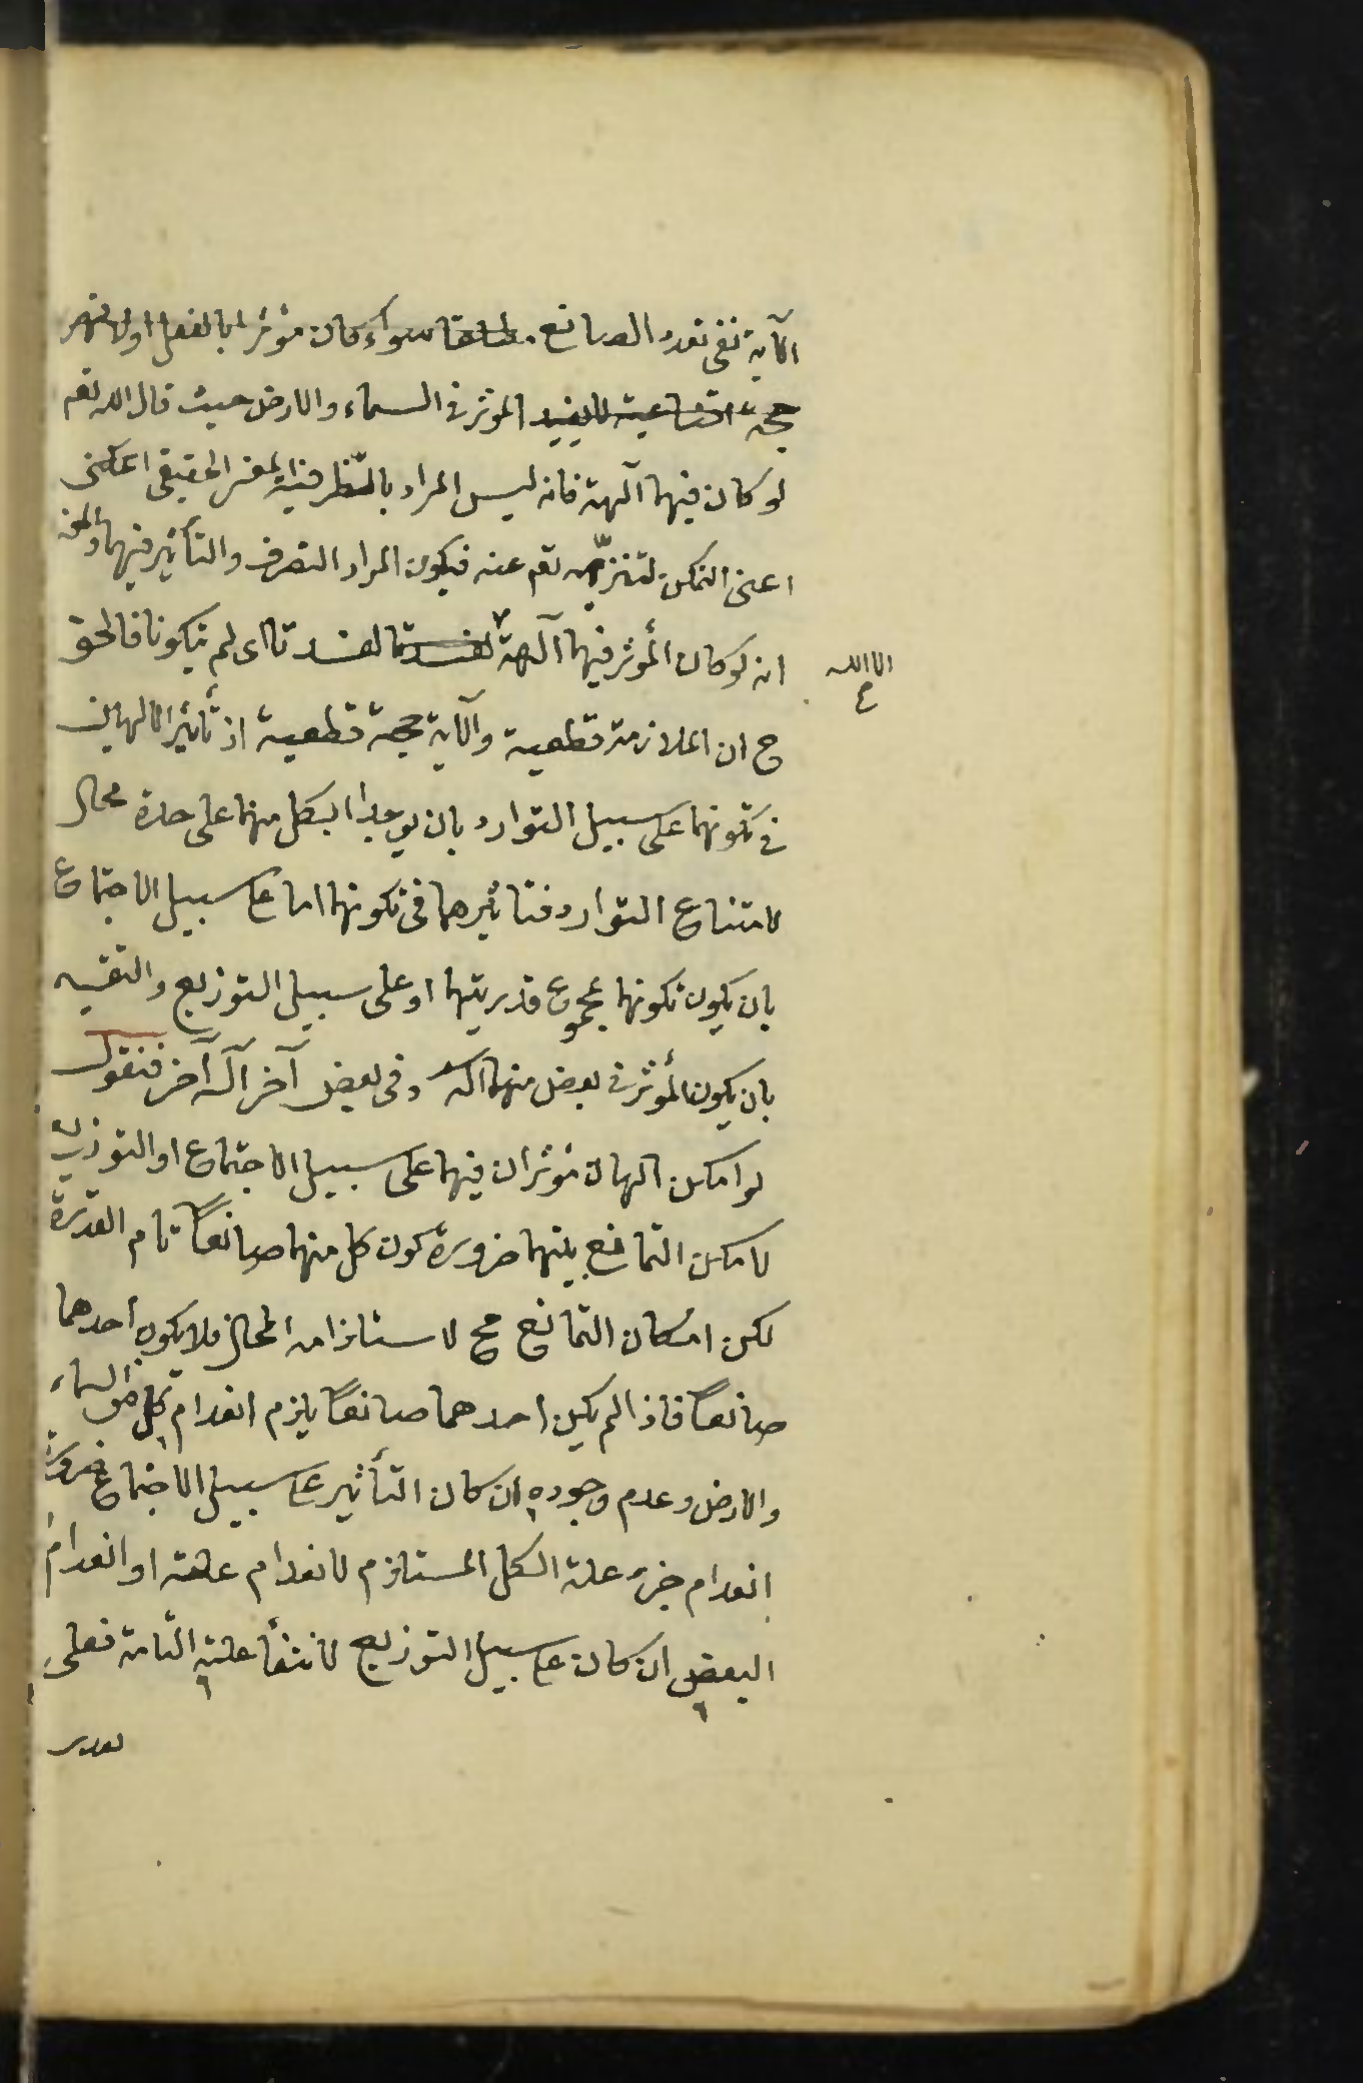 الآية نفى تعدد الصانع مطلقا سواء كان مؤثرا بالفعل اولا فهى
حجة اقناعية لا يفيد المؤثر فى السماء والارض حيث قال الله تعم
لو كان فيهما آلهة فانه ليس المراد بالظرفية المعنى الحقيقى اعنى
اعنى التمكن لتنزهه تعم عنه فيكون المراد التصرف والتأثير فيهما والمعنى
انه لو كان المؤثر فيهما آلهة لفسدتا لفسدتا اى لم تكونا فالحق
الا الله
ح ان الملازمة قطعية والآية حجة قطعية اذ تأثير الالهين
فى تكونهما على سبيل التوارد بان يوجدا بكل منهما على حدة محال
لامتناع التوارد فتاثيرهما فى تكونهما اما على سبيل الاجتماع
بان يكون تكونهما بمجموع قدرتيهما او على سبيل التوزيع والتقسيم
بان يكون المؤثر فى بعض منهما اله وفى بعض آخر آله آخر فنقول
لو امكن الهان مؤثران فيهما على سبيل الاجتماع او التوزيع
لامكن التمانع بينهما ضرورة كون كل منهما صانعاً تام القدرة
لكن امكان التمانع مح لاستلزامه المحال فلا يكون احدهما
صانعاً فاذا لم يكن احدهما صانعاً يلزم انعدام كل من السماء
والارض وعدم وجوده ان كان التأثير على سبيل الاجتماع ضرورة
انعدام جزء علة الكل المستلزم لانعدام علته او انعدام
البعض ان كان على سبيل التوزيع لانتفأ علته التامة فعلى
تقدير